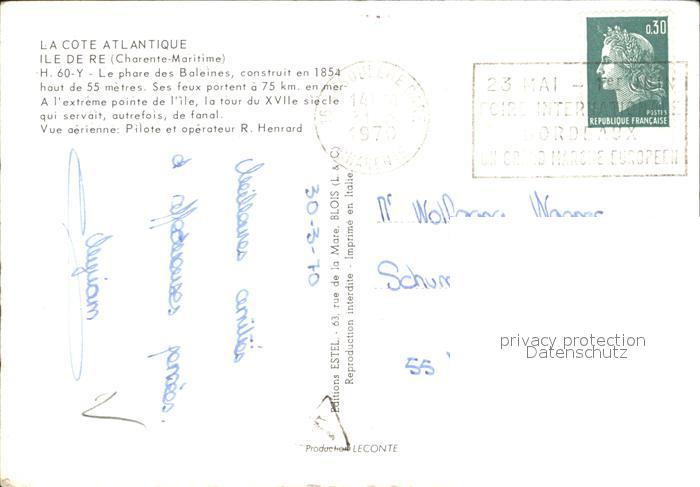 LA COTE ATLANTIQUE
ILE DE RE (Charente-Maritime)
H. 60-Y - Le phare des Baleines, construit en 1854
haut de 55 mètres. Ses feux portent à 75 km. en mer-
A l'extrême pointe de l'île, la tour du XVIIe siècle
qui servait, autrefois, de fanal.
Vue aérienne: Pilote et opérateur R. Henrard
1970
0.30
POSTES
REPUBLIQUE FRANÇAISE
23 MAI - 1er JUIN
FOIRE INTERNATIONALE
BORDEAUX
UN GRAND MARCHE EUROPEEN
30-3-70
Meilleures amitiés
& affectueuses pensées.
Myriam
Editions ESTEL - 63, rue de la Mare, BLOIS (L. & C.)
Reproduction interdite - Imprimé en Italie
Mr Wolfgang
55
privacy protection
Datenschutz
Production LECONTE